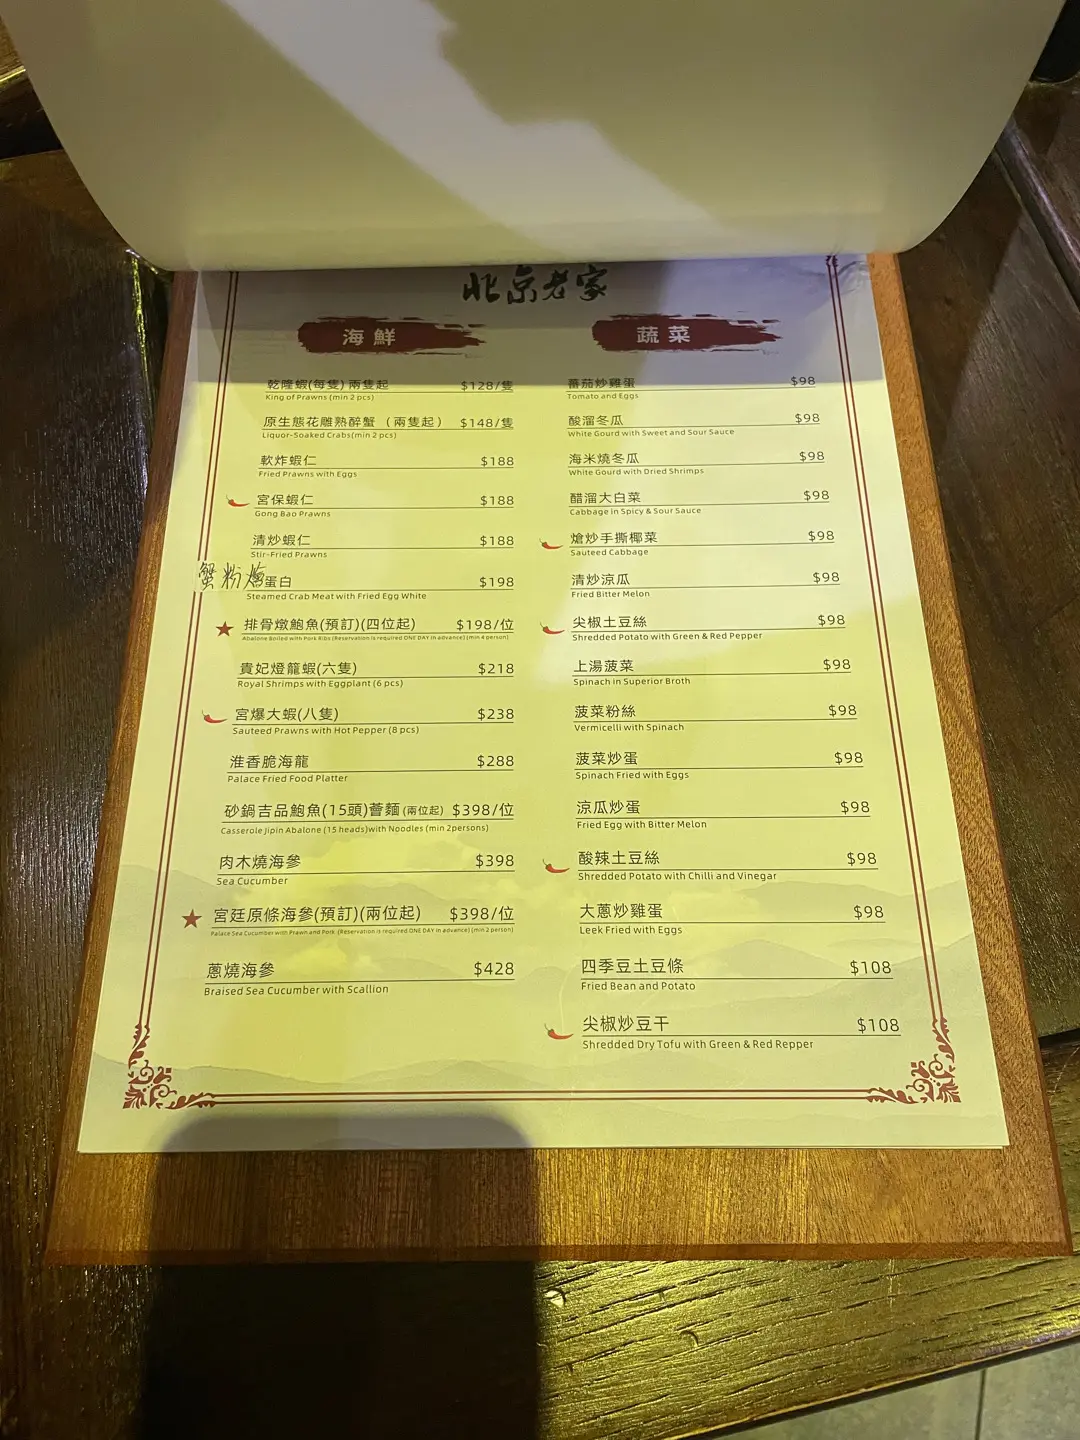 北京老家
海鮮
乾隆蝦(每隻) 兩隻起 $128/隻
King of Prawns (min 2 pcs)
原生態花雕熟醉蟹 （兩隻起） $148/隻
Liquor-Soaked Crabs(min 2 pcs)
軟炸蝦仁 $188
Fried Prawns with Eggs
宮保蝦仁 $188
Gong Bao Prawns
清炒蝦仁 $188
Stir-Fried Prawns
蟹粉 蛋白 $198
Steamed Crab Meat with Fried Egg White
排骨燉鮑魚(預訂)(四位起) $198/位
Abalone Boiled with Pork Ribs (Reservation is required ONE DAY in advance) (min 4 person)
貴妃燈龍蝦(六隻) $218
Royal Shrimps with Eggplant (6 pcs)
宮爆大蝦(八隻) $238
Sauteed Prawns with Hot Pepper (8 pcs)
淮香脆海龍 $288
Palace Fried Food Platter
砂鍋吉品鮑魚(15頭)薈麵(兩位起) $398/位
Casserole Jipin Abalone (15 heads)with Noodles (min 2persons)
肉木燒海參 $398
Sea Cucumber
宮廷原條海參(預訂)(兩位起) $398/位
Palace Sea Cucumber with Prawn and Pork (Reservation is required ONE DAY in advance) (min 2 person)
蔥燒海參 $428
Braised Sea Cucumber with Scallion
蔬菜
蕃茄炒雞蛋 $98
Tomato and Eggs
酸溜冬瓜 $98
White Gourd with Sweet and Sour Sauce
海米燒冬瓜 $98
White Gourd with Dried Shrimps
醋溜大白菜 $98
Cabbage in Spicy & Sour Sauce
熗炒手撕椰菜 $98
Sauteed Cabbage
清炒涼瓜 $98
Fried Bitter Melon
尖椒土豆絲 $98
Shredded Potato with Green & Red Pepper
上湯菠菜 $98
Spinach in Superior Broth
菠菜粉絲 $98
Vermicelli with Spinach
菠菜炒蛋 $98
Spinach Fried with Eggs
涼瓜炒蛋 $98
Fried Egg with Bitter Melon
酸辣土豆絲 $98
Shredded Potato with Chilli and Vinegar
大蔥炒雞蛋 $98
Leek Fried with Eggs
四季豆土豆條 $108
Fried Bean and Potato
尖椒炒豆干 $108
Shredded Dry Tofu with Green & Red Repper